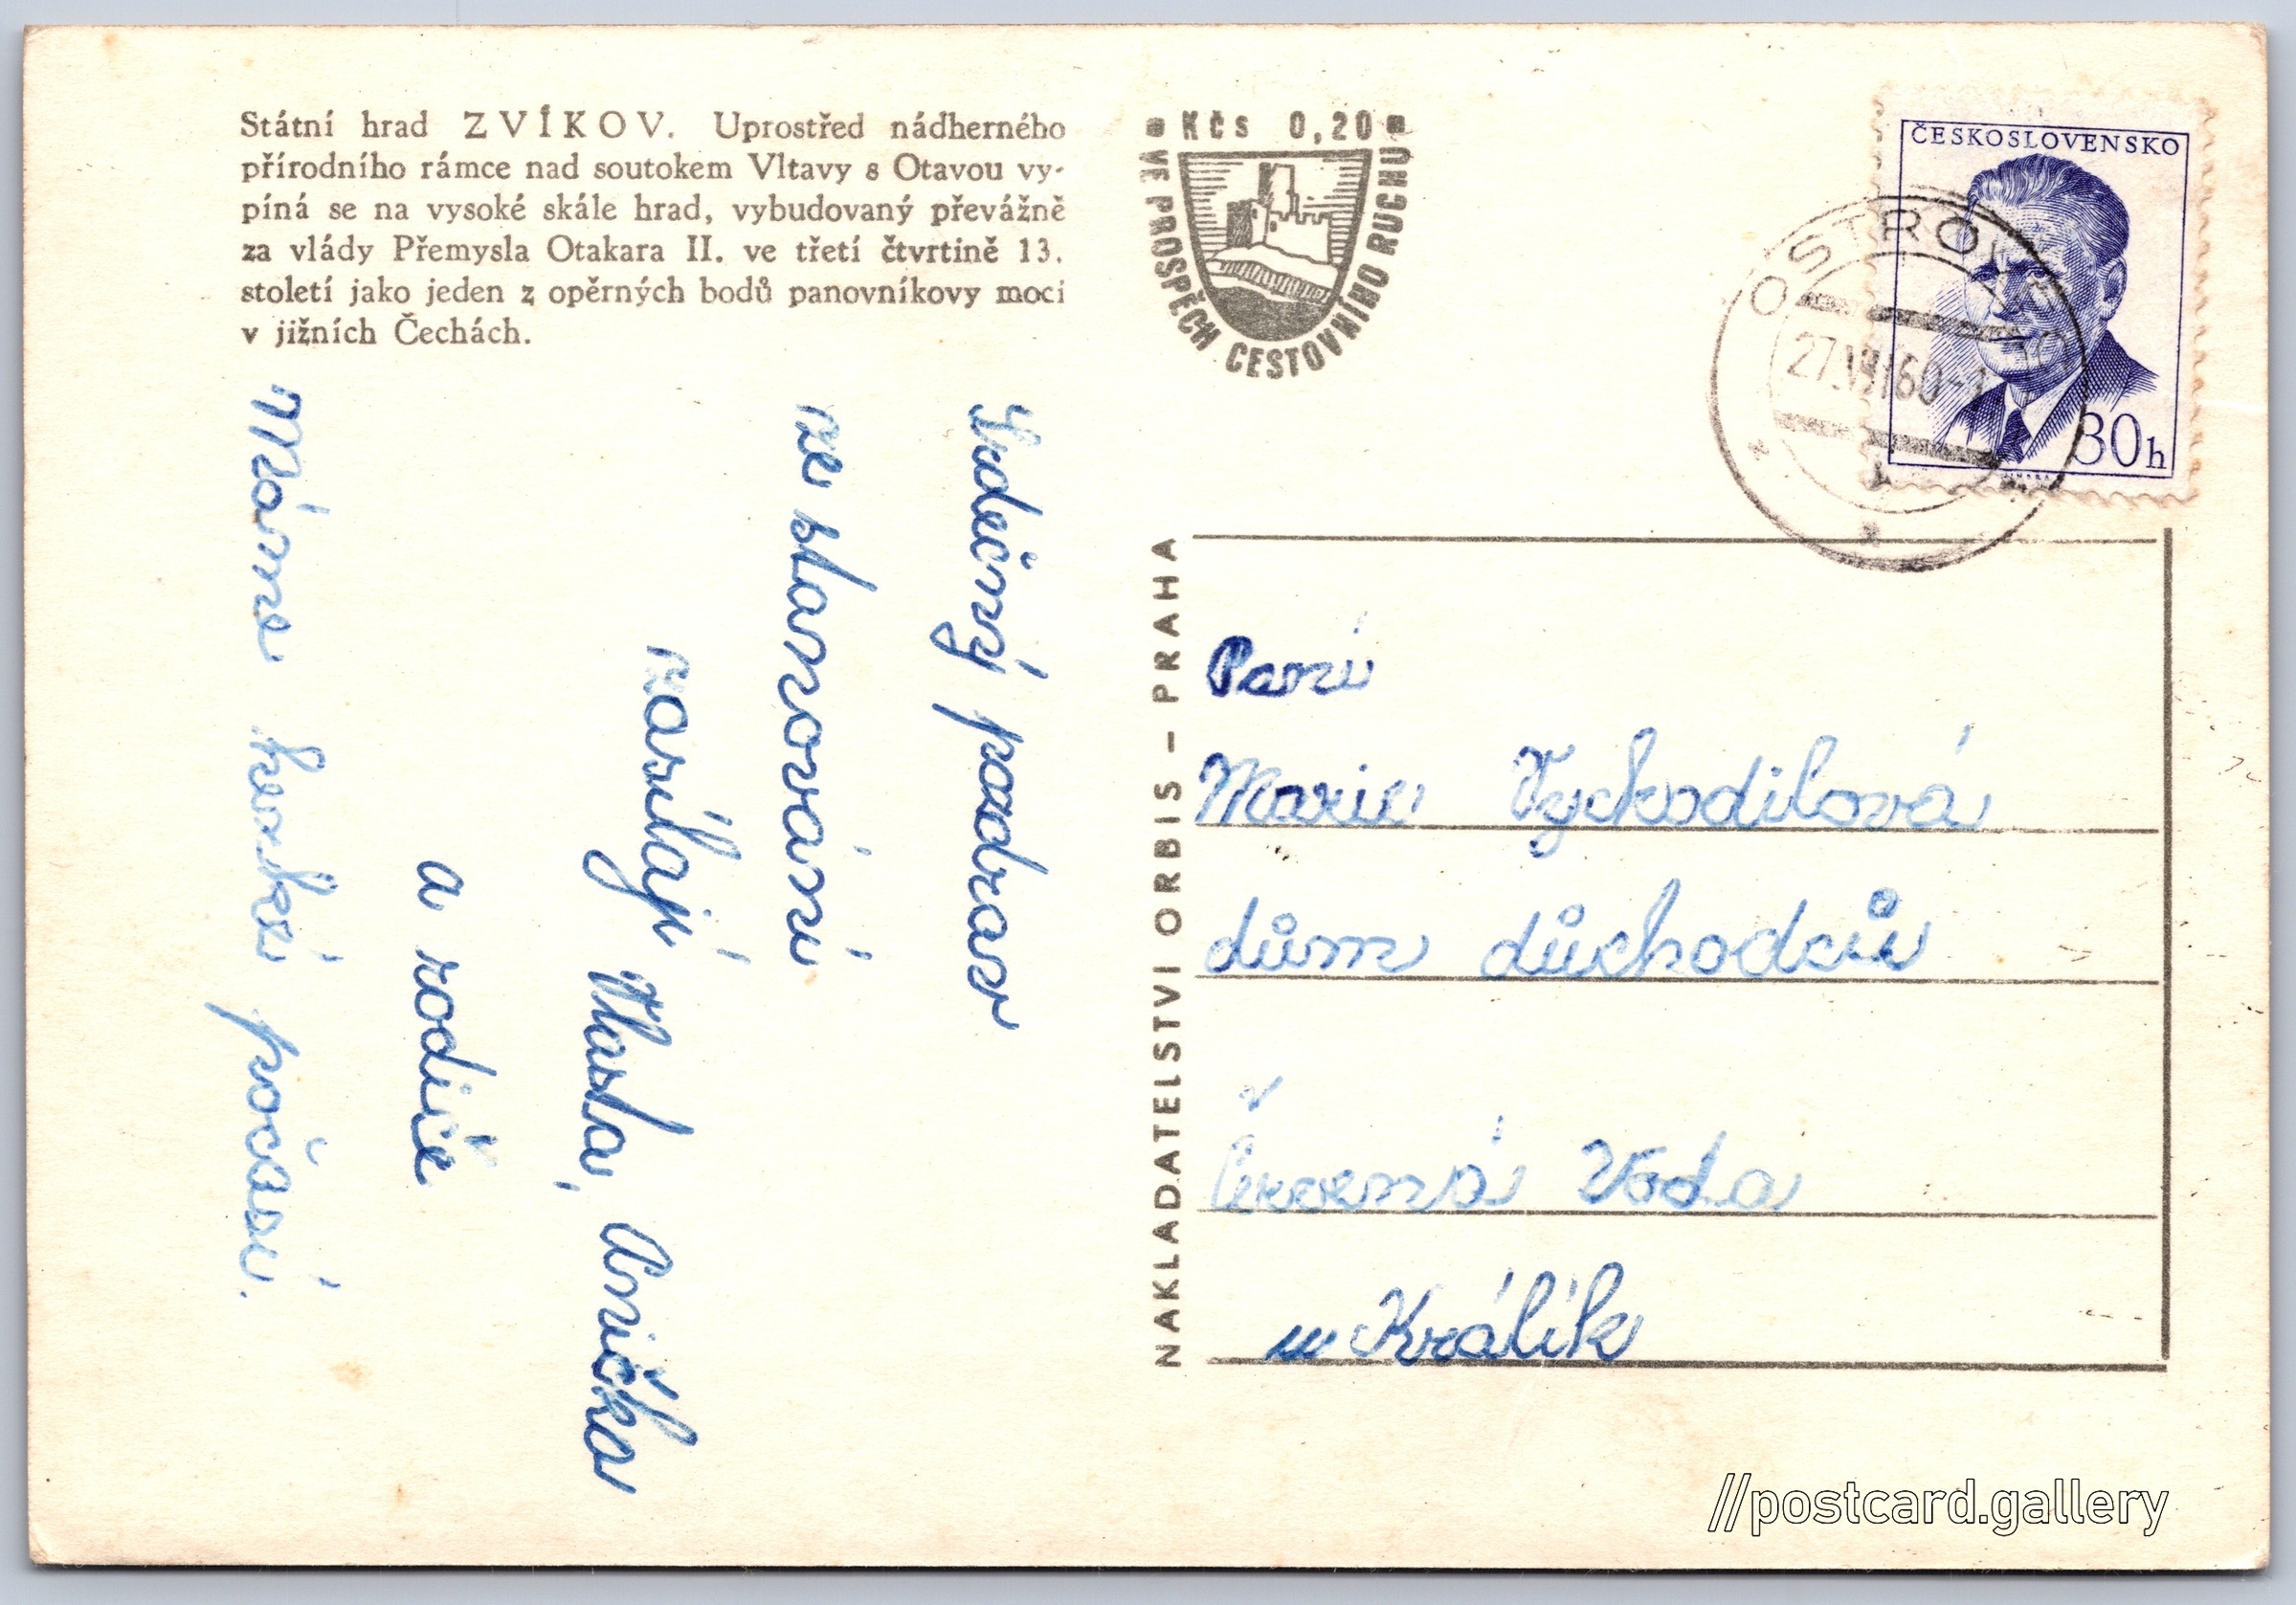 Státní hrad ZVÍKOV. Uprostřed nádherného
přírodního rámce nad soutokem Vltavy s Otavou vy-
píná se na vysoké skále hrad, vybudovaný převážně
za vlády Přemysla Otakara II. ve třetí čtvrtině 13.
století jako jeden z opěrných bodů panovníkovy moci
v jižních Čechách.
Srdečný pozdrav
ze stanování
zasílají Vlasta, Anička
a rodiče
Máme hezké počasí.
KČS 0,20
VE PROSPĚCH CESTOVNÍHO RUCHU
NAKLADATELSTVÍ ORBIS – PRAHA
ČESKOSLOVENSKO
30h
27.VII.60
Paní
Marie Vychodilová
dům důchodců
Červená Voda
u Králík
//postcard.gallery